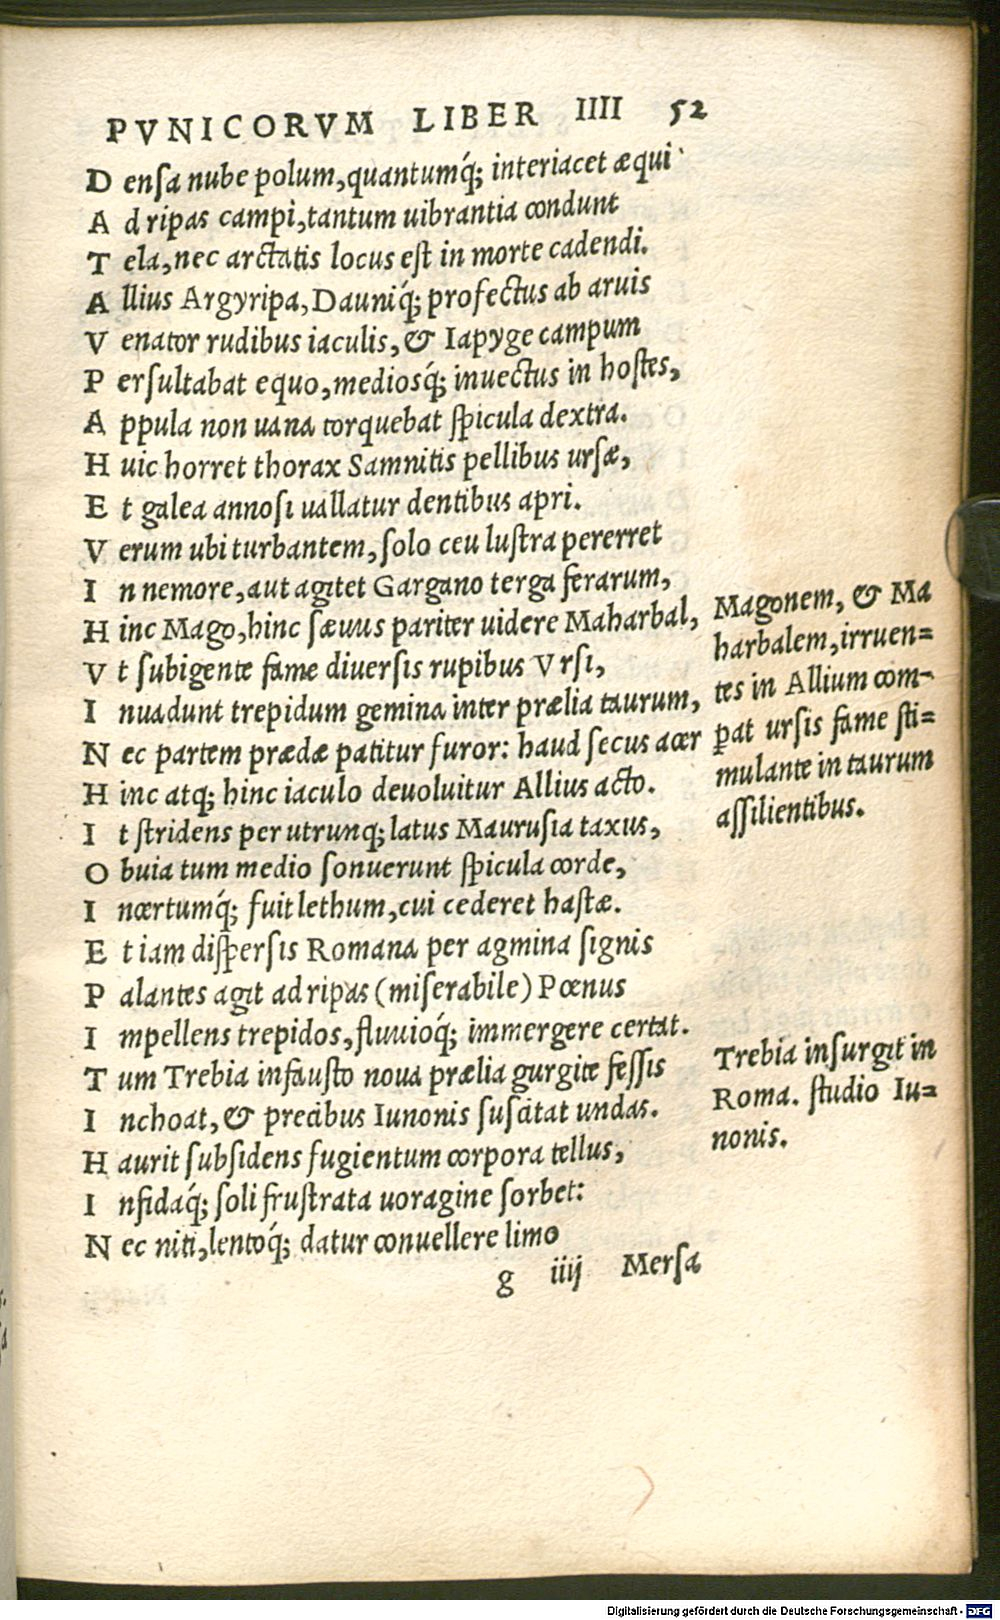 PVNICORVM LIBER IIII 52
D ensa nube polum, quantumq́; interiacet æqui
A d ripas campi, tantum uibrantia condunt
T ela, nec arctatis locus est in morte cadendi.
A llius Argyripa, Dauniq́; profectus ab aruis
V enator rudibus iaculis, & Iapyge campum
P ersultabat equo, mediosq́; inuectus in hostes,
A ppula non uana torquebat spicula dextra.
H uic horret thorax Samnitis pellibus ursæ,
E t galea annosi uallatur dentibus apri.
V erum ubi turbantem, solo ceu lustra pererret
I n nemore, aut agitet Gargano terga ferarum,
H inc Mago, hinc sæuus pariter uidere Maharbal,
V t subigente fame diuersis rupibus Vrsi,
I nuadunt trepidum gemina inter prælia taurum,
N ec partem prædæ patitur furor: haud secus acer
H inc atq; hinc iaculo deuoluitur Allius acto.
I t stridens per utrunq; latus Maurusia taxus,
O buia tum medio sonuerunt spicula corde,
I ncertumq́; fuit lethum, cui cederet hastæ.
E t iam dispersis Romana per agmina signis
P alantes agit ad ripas (miserabile) Pœnus
I mpellens trepidos, fluuioq́; immergere certat.
T um Trebia infausto noua prælia gurgite fessis
I nchoat, & precibus Iunonis suscitat undas.
H aurit subsidens fugientum corpora tellus,
I nfidaq́; soli frustrata uoragine sorbet:
N ec niti, lentoq́; datur conuellere limo
g iiij Mersa
Magonem, & Ma
harbalem, irruen=
tes in Allium com-
p̱at ursis fame sti=
mulante in taurum
assilientibus.
Trebia insurgit in
Roma. studio Iu=
nonis.
Digitalisierung gefördert durch die Deutsche Forschungsgemeinschaft - DFG